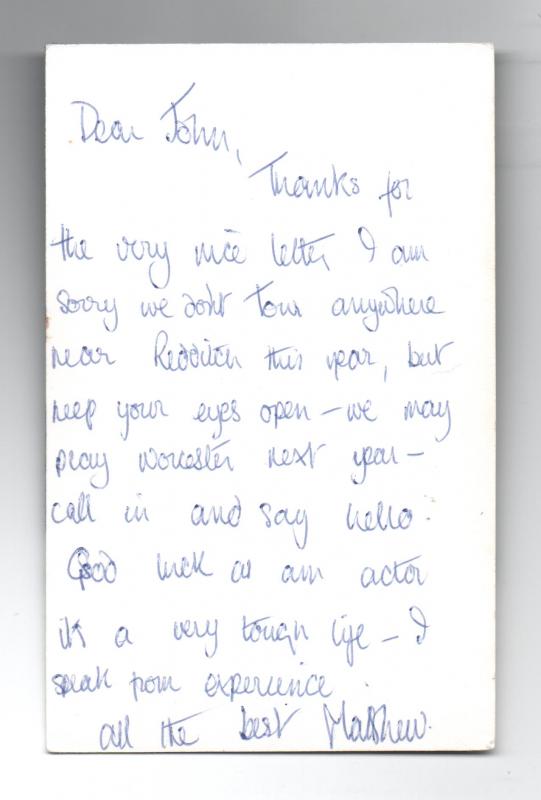 Dear John,
Thanks for
the very nice letter, I am
sorry we don't tour anywhere
near Redditch this year, but
keep your eyes open – we may
play Worcester next year –
call in and say hello.
Good luck as an actor
it's a very tough life – I
speak from experience.
all the best Matthew.